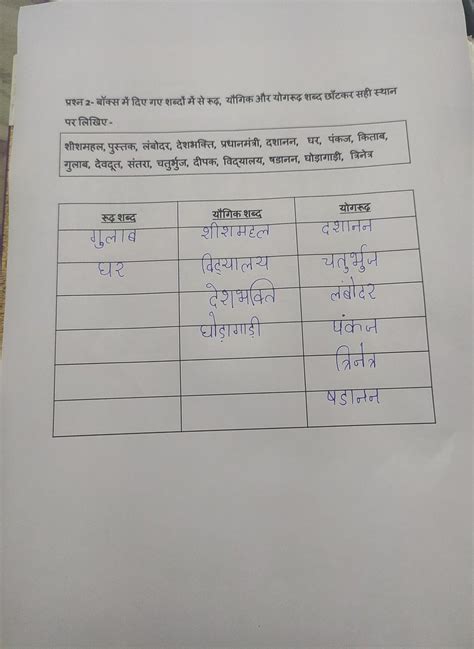 प्रश्न 2- बॉक्स में दिए गए शब्दों में से रूढ़, यौगिक और योगरूढ़ शब्द छाँटकर सही स्थान
पर लिखिए -
शीशमहल, पुस्तक, लंबोदर, देशभक्ति, प्रधानमंत्री, दशानन, घर, पंकज, किताब,
गुलाब, देवदूत, संतरा, चतुर्भुज, दीपक, विद्यालय, षडानन, घोड़ागाड़ी, त्रिनेत्र
रूढ़ शब्द यौगिक शब्द योगरूढ़
गुलाब शीशमहल दशानन
घर विद्यालय चतुर्भुज
देशभक्ति लंबोदर
घोड़ागाड़ी पंकज
त्रिनेत्र
षडानन